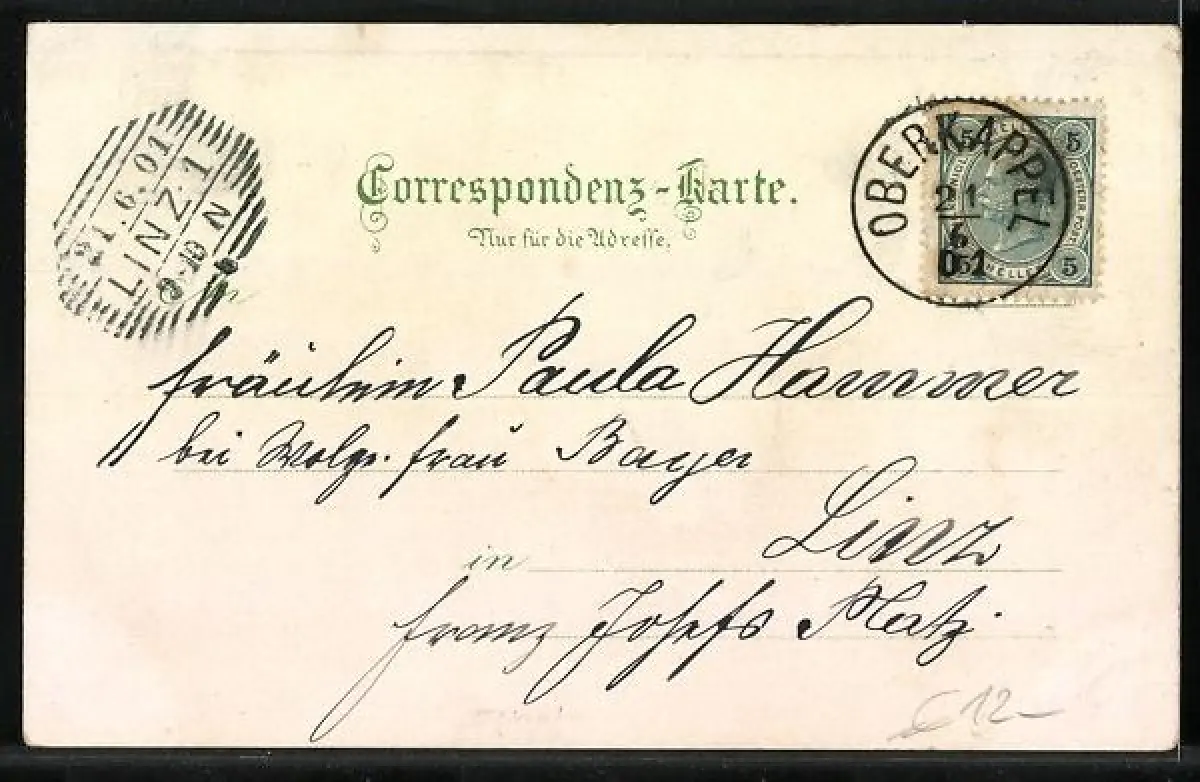 Correspondenz-Karte.
Nur für die Adresse.
21.6.01
LINZ 1
9-10 N
OBERKAPPEL
21
6
01
5 5
5 5
HELLER
Fräulein Paula Hammer
bei Wolge. Frau Bayer
in Linz
Franz Josefs Platz.
€ 12-